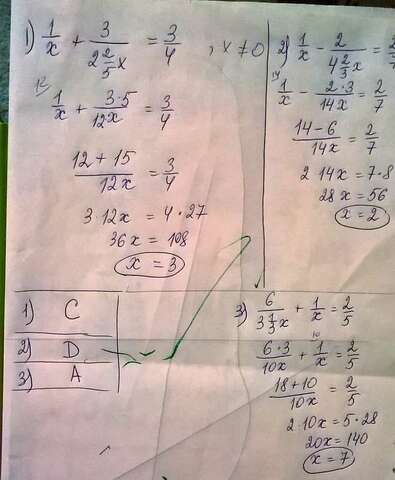 1) 1/x + 3/(2 2/5 x) = 3/4 , x ≠ 0
12
1/x + 3·5/12x = 3/4
12 + 15/12x = 3/4
3 12x = 4 · 27
36x = 108
x = 3
2) 1/x - 2/(4 2/3 x) =
14
1/x - 2·3/14x = 2/7
14-6/14x = 2/7
2 14x = 7·8
28x = 56
x = 2
1) C
2) D
3) A
3) 6/(3 1/3 x) + 1/x = 2/5
10
6·3/10x + 1/x = 2/5
18+10/10x = 2/5
2·10x = 5·28
20x = 140
x = 7